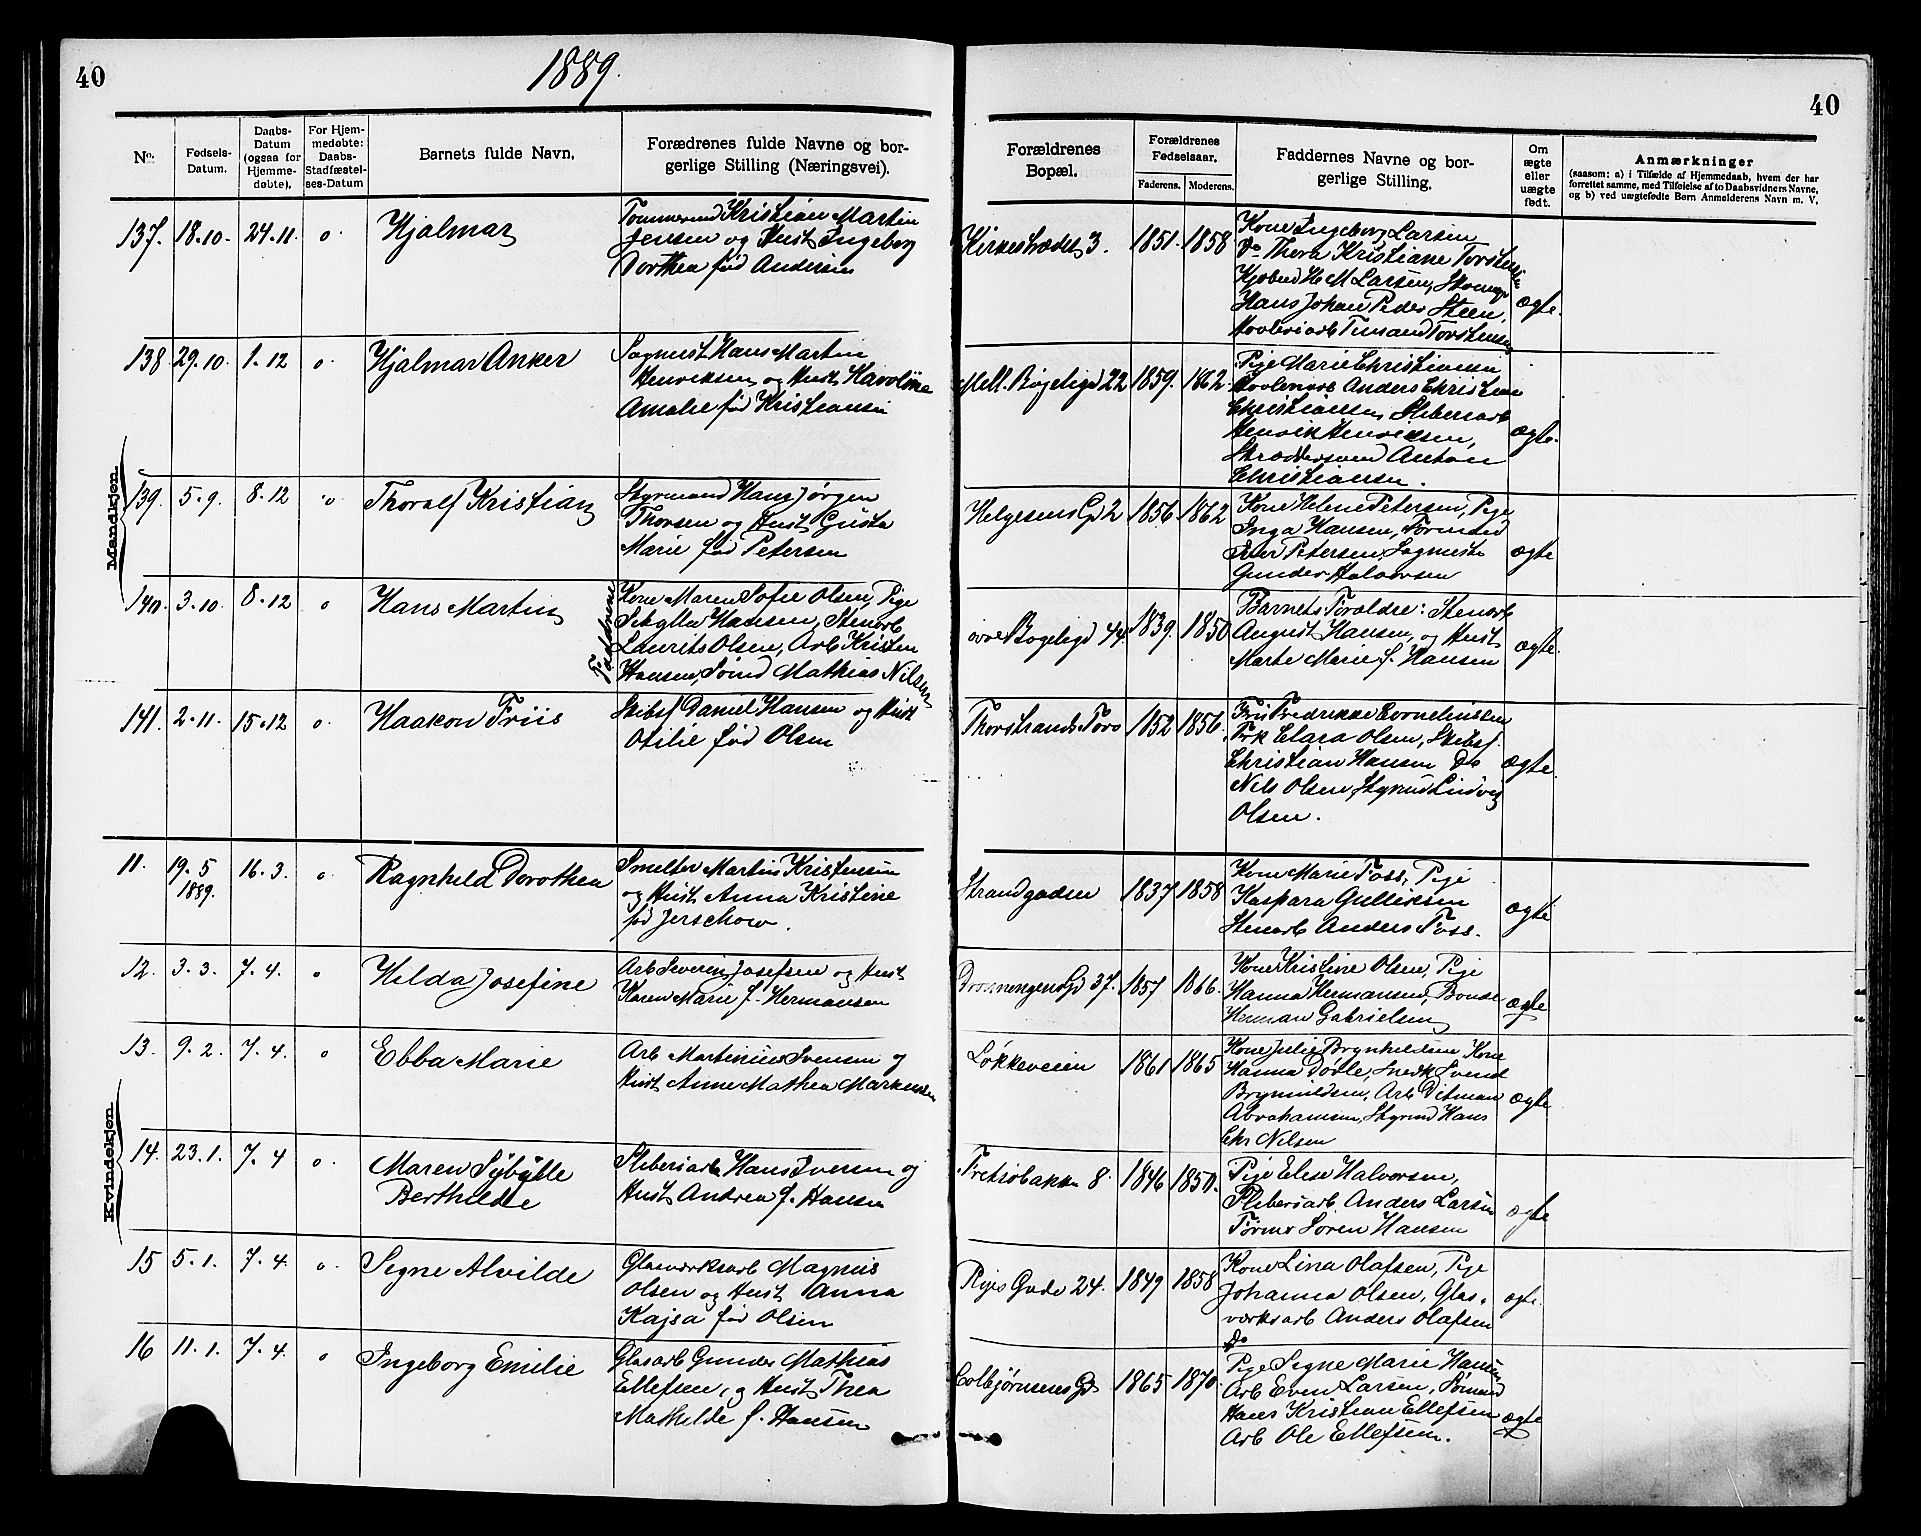 40
1889.
40
No:
Fødsels-
Datum.
Daabs-
Datum
(ogsaa for
Hjemme-
døbte).
For Hjem-
medøbte:
Daabs-
Stadfæstel-
ses-Datum
Barnets fulde Navn.
Forældrenes fulde Navne og bor-
gerlige Stilling (Næringsvei).
Forældrenes
Bopæl.
Forældrenes
Fødselsaar.
Faderens. Moderens.
Faddernes Navne og bor-
gerlige Stilling.
Om
ægte
eller
uægte
født.
Anmærkninger
(saasom: a) i Tilfælde af Hjemmedaab, hvem der har
forrettet samme, med Tilføielse af to Daabsvidners Navne,
og b) ved uægtefødte Børn Anmelderens Navn m. V.
Mandkjøn.
137. 18.10. 24.11. o Hjalmar
Tømmermd Kristian Martin
Jensen og Hust Ingeborg
Dorthea fød Andersen
Kirkestrædet 3. 1851. 1858
Kone Ingeborg Larsen
Do Thora Kristiane Torstensen
Kjøbmd H M Larsen, Skomgr
Hans Johan Peder Steen,
Høvleriarb Timand Torstensen
ægte.
138 29.10. 1.12 o. Hjalmar Anker
Sagmest. Hans Martin
Henriksen og Hust Karoline
Amalie fød Kristiansen
Mell. Bøgeligd 22 1859. 1862.
Pige Marie Christiansen
Anders Christian
Christiansen, Sliberiarb
Henrik Henriksen,
Skræddersvend Anton
Christiansen.
ægte.
139. 5.9. 8.12 o Thoralf Kristian
Styrmand Hans Jørgen
Thorsen og Hust Gusta
Marie fød Petersen
Helgesens Gd 2 1856 1862
Kone Helene Petersen, Pige
Inga Hansen, Tørmand
Petersen, Sagmest
Gunder Halvorsen
ægte
140. 3.10. 8.12 o Hans Martin
Fadderne
Kone Maren Sofie Olsen, Pige
Sibylla Hansen, Stenarb
Laurits Olsen, Arb Kristen
Hansen, Sømd Mathias Nilsen
øvre Bøgeligd 44. 1839. 1850
Barnets Forældre: Stenarb
August Hansen, og Hust
Marte Marie f. Hansen
ægte.
141. 2.11. 15.12 o. Haakon Friis
Skibsf Daniel Hansen og Hust
Otilie fød Olsen
Thorstrands Torv 1852 1856.
Fru Fredrikke Corneliussen
Frk Clara Olsen, Skibsf.
Christian Hansen Do
Nils Olsen, Styrmd Ludvig
Olsen.
ægte.
Kvindekjøn.
11. 19.5 1889. 16.3. o Ragnhild Dorothea
Smelter Martin Kristensen
og Hust Anna Kristine
fød Jerschow.
Strandgaden 1837 1858
Kone Marie Foss, Pige
Kaspara Gulliksen
Stenarb Anders Foss.
ægte
12. 3.3. 7.4. o Hilda Josefine
Arb Severin Josefsen og Hust
Karen Marie f. Hermansen
Dronningens Gd 37. 1857 1866.
Kone Kristine Olsen, Pige
Hanna Hermansen, Bonde
Herman Gabrielsen
ægte
13. 9.2. 7.4. o Ebba Marie
Arb Martinius Svensen og
Hust Anne Mathea Markussen
Løkkeveien 1861 1865
Kone Julie Brynhildsen, Kone
Hanna Dørle, Snedk Svend
Brynildsen, Arb Ditman
Abrahamsen, Styrmd Hans
Chr Nilsen
ægte
14. 23.1. 7.4 o. Maren Sybylle
Berthilde
Sliberiarb Hans Iversen og
Hust Andrea f. Hansen
8. 1846 1850.
Pige Elise Halvorsen,
Sliberiarb. Anders Larsen
Tømr Søren Hansen
ægte
15 5.1. 7.4. o. Signe Alvilde
Glasværksarb Magnus
Olsen og Hust Anna
Kajsa fød Olsen
Ryes Gade 24. 1849 1858
Kone Lina Olafsen, Pige
Johanna Olsen, Glas-
værksarb Anders Olafsen
ægte.
16 11.1. 7.4. o Ingeborg Emilie
Glasarb Gunder Mathias
Ellefsen, og Hust Thea
Mathilde f. Hansen
Colbjørnsens Gd 1865 1870.
Do
Pige Signe Marie Hansen
Arb Even Larsen, Sømand
Hans Kristian Ellefsen
Arb Ole Ellefsen.
ægte